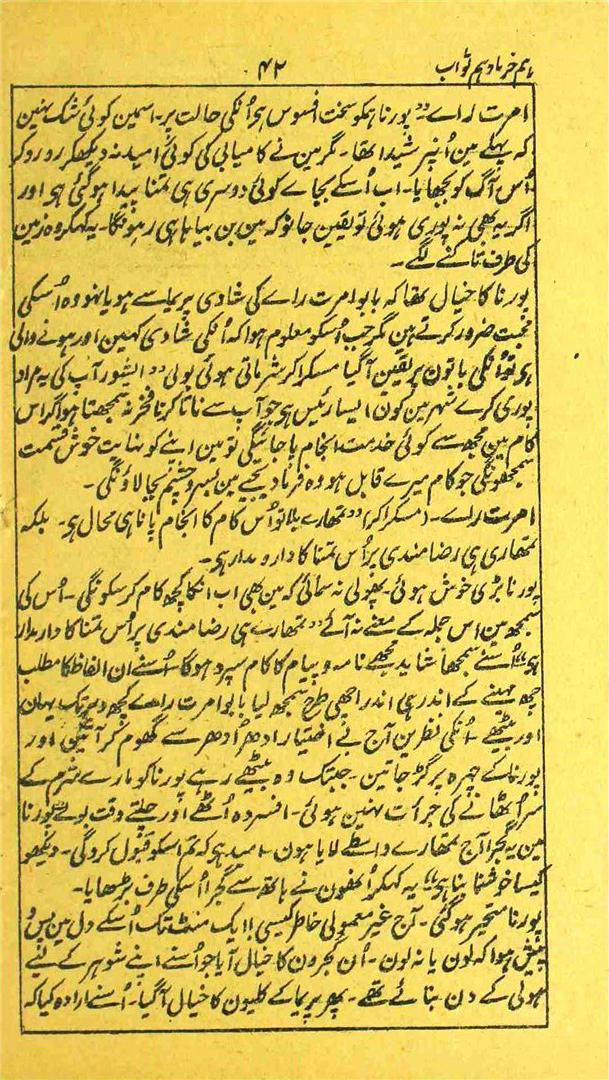 ہم خرما و ہم ثواب ۴۲
امرت راے۔ "پورنا ہمکو سخت افسوس ہی اُنکی حالت پر۔ اسمین کوئی شک نہین
کہ پہلے مین اُنپر شیدا تھا۔ مگر مین نے کامیابی کی کوئی امید نہ دیکھکر رو رو کر
اُس آگ کو بجھایا۔ اب اُسکے بجاے کوئی دوسری ہی تمنا پیدا ہو گئی ہی اور
اگر یہ بھی نہ پوری ہوئی تو یقین جانو کہ مین بن بیاہا ہی رہونگا۔ یہ کہکر وہ زمین
کی طرف تاکنے لگے۔
پورنا کا خیال تھا کہ بابو امرت راے کی شادی پریما سے ہو یا نہو وہ اُسکی
محبت ضرور کرتے ہین مگر جب اُسکو معلوم ہوا کہ اُنکی شادی کہین اور ہونے والی
ہی تو اُنکی باتون پر یقین آ گیا مسکرا کر شرماتی ہوئی بولی "ایشور آپ کی یہ مراد
پوری کرے شہر مین کون ایسا رئیس ہی جو آپ سے ناتا کرنا فخر نہ سمجھتا ہو اگر اس
کام مین مجھ سے کوئی خدمت انجام پا جائیگی تو مین اپنے کو نہایت خوش قسمت
سمجھونگی جو کام میرے قابل ہو وہ فرما دیجیے مین بسر و چشم بجا لاؤنگی۔
امرت راے۔ (مسکرا کر) "تمھارے بلا تو اُس کام کا انجام پانا ہی محال ہی۔ بلکہ
تمھاری ہی رضامندی پر اُس تمنا کا دار و مدار ہی۔
پورنا بڑی خوش ہوئی۔ پھولی نہ سمائی کہ مین بھی اب انکا کچھ کام کر سکونگی۔ اُس کی
سمجھ مین اس جملہ کے معنے نہ آئے "تمھارے ہی رضامندی پر اُس تمنا کا دار مدار
ہی" اُسنے سمجھا شاید مجھے نامہ و پیام کا کام سپرد ہوگا۔ اُسنے ان الفاظ کا مطلب
چھ مہینے کے اندر ہی اندر اچھی طرح سمجھ لیا بابو امرت راے کچھ دیر تک یہان
اور بیٹھے۔ اُنکی نظرین آج بے اختیار ادھر اُدھر سے گھوم کر آتین اور
پورنا کے چہرہ پر گڑ جاتین۔ جبتک وہ بیٹھے رہے پورنا کو مارے شرم کے
سر اُٹھانے کی جرأت نہین ہوئی۔ افسردہ اُٹھے اور چلتے وقت بولے "پورنا
مین یہ گجرا آج تمھارے واسطے لایا ہون۔ امید ہی کہ تم اسکو قبول کروگی۔ دیکھو
کیسا خوشنما بنا ہی" یہ کہکر اُنھون نے ہاتھ سے گجرا اُسکی طرف بڑھایا۔
پورنا متحیر ہو گئی۔ آج غیر معمولی خاطر کیسی! ایک منٹ تک اُسکے دل مین پس و
پیش ہوا کہ لون یا نہ لون۔ اُن گجرون کا خیال آیا جو اُسنے اپنے شوہر کے لئے
ہولی کے دن بنائے تھے۔ پھر پریما کے کلیون کا خیال آ گیا۔ اُسنے ارادہ کیا کہ